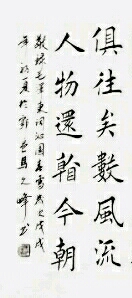 俱往矣數風流
人物還看今朝
敬錄毛澤東詞沁園春雪歲次戊戌
年初夏於之峰書